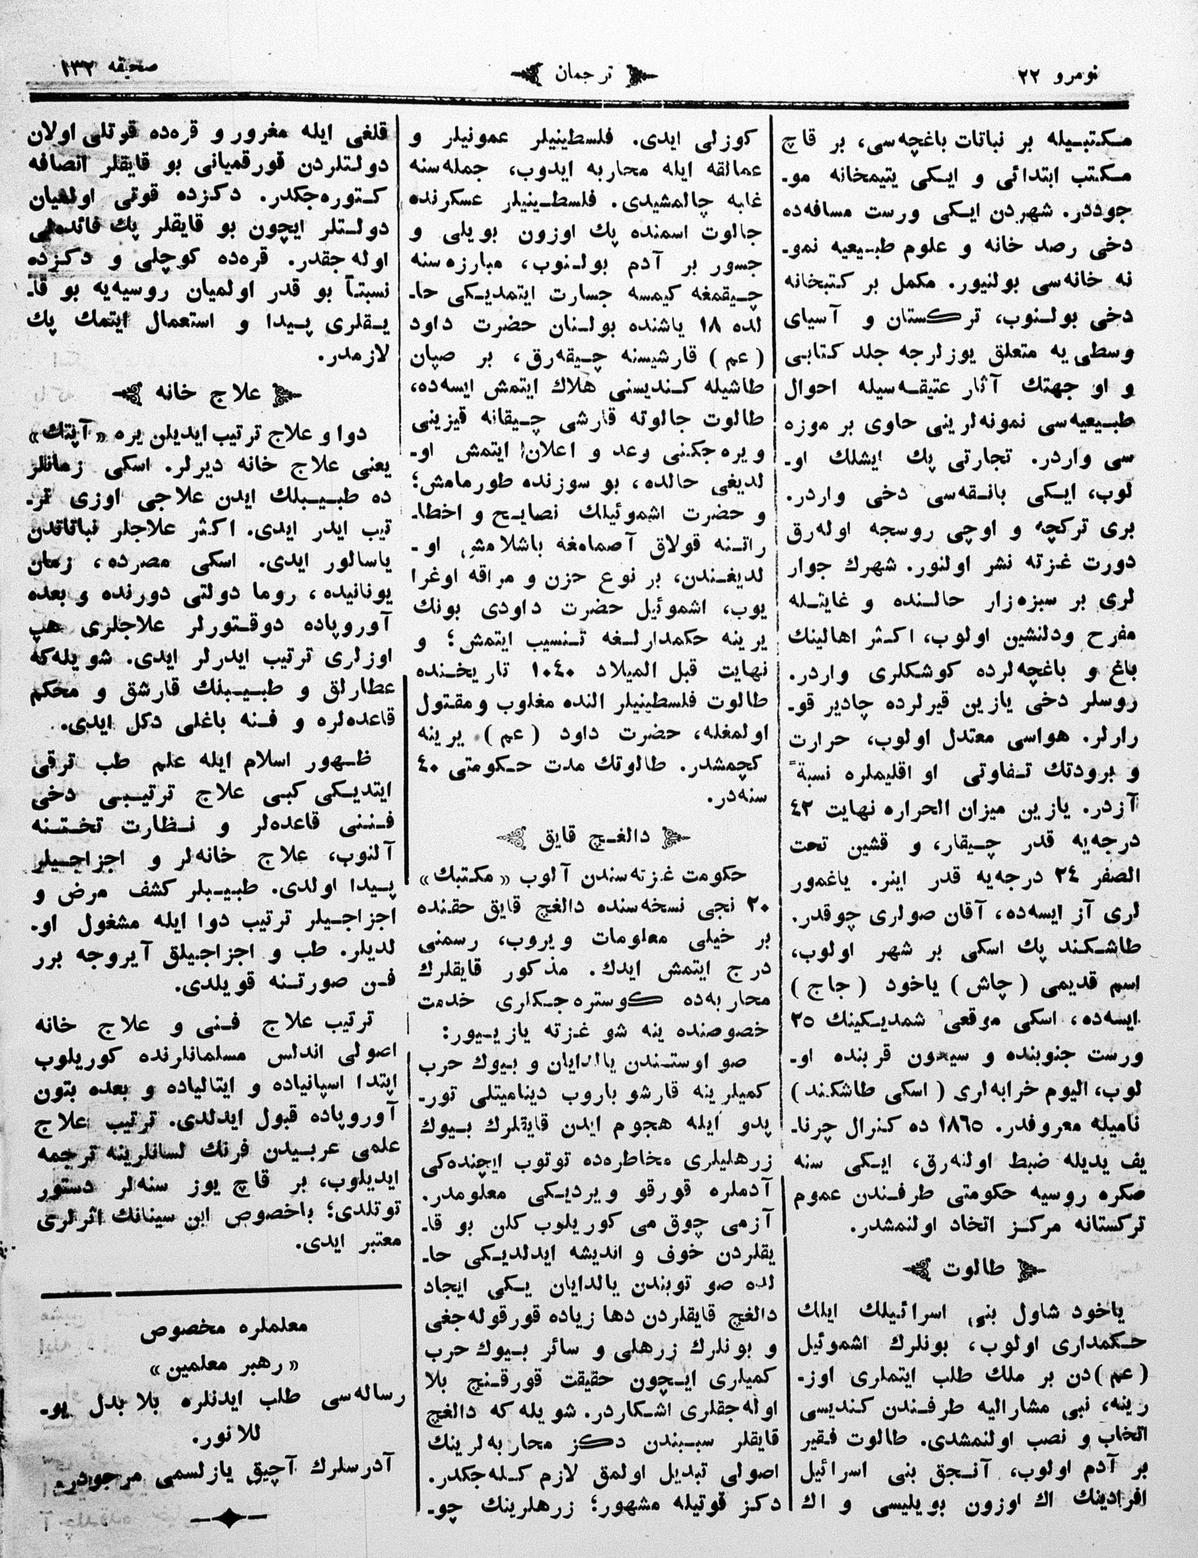 نومرو ۲۲
ترجمان
صحیفه ۱۳۲
مكتبـیله بر نباتات باغچه‌سی، بر قاچ
مكتب ابتدائی و ایكی یتیمخانه مو-
جوددر. شهردن ایـكی ورست مسافه‌ده
دخی رصد خانه و علوم طبـیعیه نمو-
نه خانه‌سی بولنیور. مكمل بر كتبخانه
دخی بولـنوب، تركستان و آسیای
وسطی یه متعلق یوزلرجه جلد كتابی
و او جهتك آثار عتیقه‌سیله احوال
طبـیعیه‌سی نمونه‌لرینی حاوی بر موزه
سی واردر. تجارتی پك ایشلك او-
لوب، ایـكی بانـقه‌سی دخی واردر.
بری تركچه و اوچی روسجه اوله‌رق
دورت غزته نشر اولنور. شهرك جوار
لری بر سبزه‌زار حالـنده و غایتـله
مفرح ودلنشین اولوب، اكثر اهالینك
باغ و باغچه‌لرده كوشكلری واردر.
روسلر دخی یازین قیرلرده چادیر قو-
رارلر. هواسی معتدل اولوب، حرارت
و برودتك تـفاوتی او اقلیملره نسبةً
آزدر. یازین میزان الحراره نهایت ۴۲
درجه‌یه قدر چـیقار، و قشین تحت
الصفر ۲۴ درجه‌یه قدر اینر. یاغمور
لری آز ایسه‌ده، آقان صولری چوقدر.
طاشـكند پك اسكی بر شهر اولوب،
اسم قدیمی (چاش) یاخود (جاج)
ایسه‌ده، اسكی موقعی شمدیـكینك ۲۵
ورست جنوبنده و سیحون قربنده او-
لوب، الیوم خرابه‌لری (اسكی طاشكند)
نامیله معروفدر. ۱۸۶۵ ده كنرال چرنا-
یف یدیله ضبط اولنه‌رق، ایـكی سنه
صكره روسیه حكومتی طرفـندن عموم
تركستانه مركـز اتخاد اولنمشدر.
طالوت
یاخود شاول بنی اسرائیلك ایلك
حـكمداری اولوب، بونلرك اشموئیل
(عم) دن بر ملك طلب ایتملری اوز-
رینه، نبی مشارالیه طرفـندن كندیسی
انتخاب و نصب اولنمشدی. طالوت فـقیر
بر آدم اولوب، آنـجق بنی اسرائیل
افرادینك اك اوزون بویلیسی و اك
كوزلی ایدی. فلسطینیلر عمونیلر و
عمالقه ایله محاربه ایدوب، جمله‌سنه
غابه چالمشیدی. فلسطـینیلر عسكرنده
جالوت اسمنده پك اوزون بویلی و
جسور بر آدم بولـنوب، مبارزه‌سنه
چـیقمغه كیمسه جسارت ایتمدیـكی حا-
لده ۱۸ یاشنده بولـنان حضرت داود
(عم) قارشیسنه چـیقه‌رق، بر صپان
طاشیله كـندیسنی هلاك ایتمش ایسه‌ده،
طالوت جالوته قارشی چـیقانه قیزینی
ویره‌جكنی وعد و اعلان ایتمش او-
لدیغی حالده، بو سوزنده طورمامش؛
و حضرت اشموئیلك نصایح و اخطا-
راتـنه قولاق آصمامغه باشلامش او-
لدیغـندن، بر نوع حزن و مراقه اوغرا
یوب، اشموئیل حضرت داودی بونك
یرینه حكمدارلـغه تـنسیب ایتمش؛ و
نهایت قبل المیلاد ۱۰۴۰ تاریخـنده
طالوت فلسطینیلر النده مغلوب ومقتول
اولمغله، حضرت داود (عم) یرینه
كچمشدر. طالوتك مدت حـكومتی ۴۰
سنه‌در.
دالغـچ قایق
حكومت غزته‌سندن آلوب «مكتبك»
۲۰ نجی نسخه‌سنده دالغچ قایق حقنده
بر خیلی معلومات ویروب، رسمنی
درج ایتمش ایدك. مذكور قایقلرك
محاربه‌ده كـوستره‌جكلری خدمت
خصوصنده ینه شو غزته یازیـیور:
صو اوستـندن یالدایان و بـیوك حرب
كمیلرینه قارشو یاروب دینامیتلی تور-
پدو ایله هجوم ایدن قایقلرك بـیوك
زرهلیلری مخاطره‌ده توتوب ایچنده‌كی
آدملره قورقو ویردیـكی معلومدر.
آزمی چوق می كوریلوب كلن بو قا-
یقلردن خوف و اندیشه ایدلدیـكی حا-
لده صو توبندن یالدایان یـكی ایجاد
دالغچ قایقلردن دها زیاده قورقوله‌جغی
و بونلرك زرهلی و سائر بـیوك حرب
كمیلری ایـچون حقیقت قورقـنچ بلا
اوله‌جقلری اشـكاردر. شویله كه دالغچ
قایقلر سبـبندن دكز محاربه‌لرینك
اصولی تبدیل اولمق لازم كـله‌جكدر.
دكز قوتیله مشهور؛ زرهلرینك چو-
قلغی ایله مغرور و قره‌ده قوتلی اولان
دولـتلردن قورقمیانی بو قایقلر انصافه
كـتوره‌جكدر. دكزده قوتی اولمیان
دولـتلر ایچون بو قایقلر پك فائده‌لی
اوله‌جقدر. قره‌ده كوچلی و دكـزده
نسبتـآ بو قدر اولمیان روسیه‌یه بو قا-
یـقلری پـیدا و استعمال ایتمك پك
لازمدر.
علاج خانه
دوا و علاج ترتیب ایدیلن یره «آپتك»
یعنی علاج خانه دیرلر. اسكی زمانلر
ده طبـیـبلك ایدن علاجی اوزی تر-
تیب ایدر ایدی. اكثر علاجلر نباتاتدن
یاسالور ایدی. اسكی مصرده، زمان
یونانیده، روما دولتی دورنده و بعده
آوروپاده دوقـتورلر علاجلری هپ
اوزلری ترتیب ایدرلر ایدی. شویله‌كه
عطارلق و طبـیـبلك قارشق و محكم
قاعده‌لره و فـنه باغلی دكل ایدی.
ظـهور اسلام ایله علم طب ترقی
ایتدیـكی كبـی علاج ترتیـبـی دخی
فـننی قاعده‌لر و نـظارت تحـتـنه
آلنوب، علاج خانه‌لر و اجزاجـیلر
پـیدا اولدی. طبـیـبلر كشف مرض و
اجزاجـیلر ترتیب دوا ایله مشغول او-
لدیلر. طب و اجزاجـیلق آیروجه برر
فـن صورتـنه قویلدی.
ترتیب علاج فـنی و علاج خانه
اصولی اندلس مسلمانلرنده كوریلوب
اپتدا اسپانیاده و ایتالیاده و بعده بتون
آوروپاده قبول ایدلدی. ترتیب علاج
علمی عربیدن فرنك لسانلرینه ترجمه
ایدیلوب، بر قاچ یوز سنه‌لر دستور
توتلدی؛ باخصوص ابن سینانك اثرلری
معتبر ایدی.
معلملره مخصوص
«رهبر معلمین»
رساله‌سی طلب ایدنلره بلا بدل یو-
للانور.
آدرسلرك آچیق یازلسمی مرجودر.